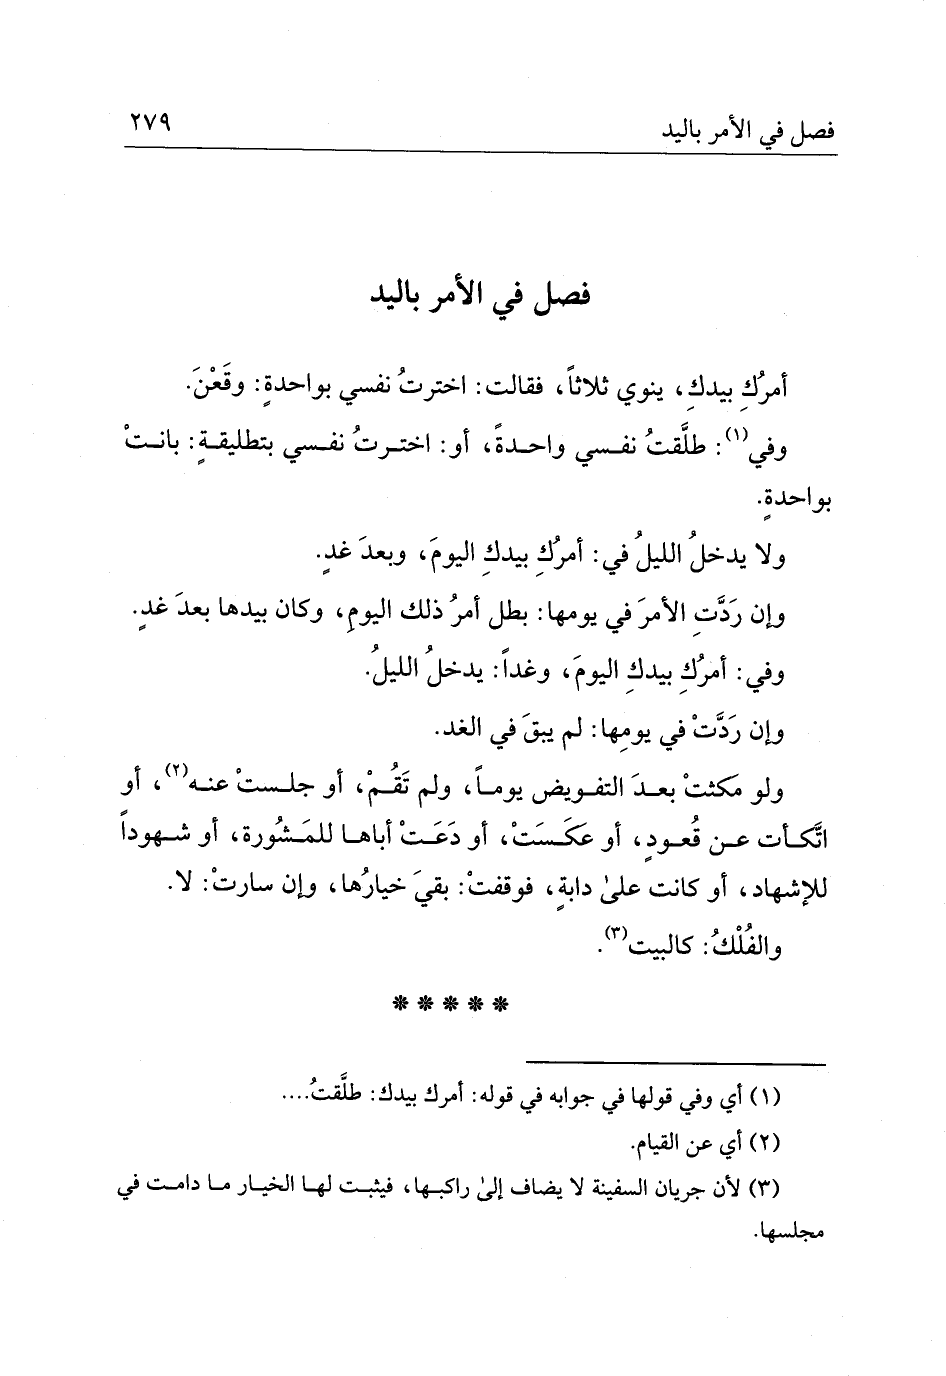 فصل في الأمر باليد ٢٧٩
فصل في الأمر باليد
أمرُكِ بيدكِ، ينوي ثلاثاً، فقالت: اخترتُ نفسي بواحدةٍ: وقَعْنَ.
وفي(١): طلَّقتُ نفسي واحدةً، أو: اخترتُ نفسي بتطليقةٍ: بانتْ
بواحدةٍ.
ولا يدخلُ الليلُ في: أمرُكِ بيدكِ اليومَ، وبعدَ غدٍ.
وإن رَدَّتِ الأمرَ في يومها: بطل أمرُ ذلك اليومِ، وكان بيدها بعدَ غدٍ.
وفي: أمرُكِ بيدكِ اليومَ، وغداً: يدخلُ الليلُ.
وإن رَدَّتْ في يومِها: لم يبقَ في الغد.
ولو مكثتْ بعدَ التفويض يوماً، ولم تَقُمْ، أو جلستْ عنه(٢)، أو
اتَّكأت عن قُعودٍ، أو عكَسَتْ، أو دَعَتْ أباها للمَشُورة، أو شهوداً
للإشهاد، أو كانت علىٰ دابةٍ، فوقفتْ: بقيَ خيارُها، وإن سارتْ: لا.
والفُلْكُ: كالبيت(٣).
*****
(١) أي وفي قولها في جوابه في قوله: أمرك بيدك: طلَّقتُ....
(٢) أي عن القيام.
(٣) لأن جريان السفينة لا يضاف إلىٰ راكبها، فيثبت لها الخيار ما دامت في
مجلسها.